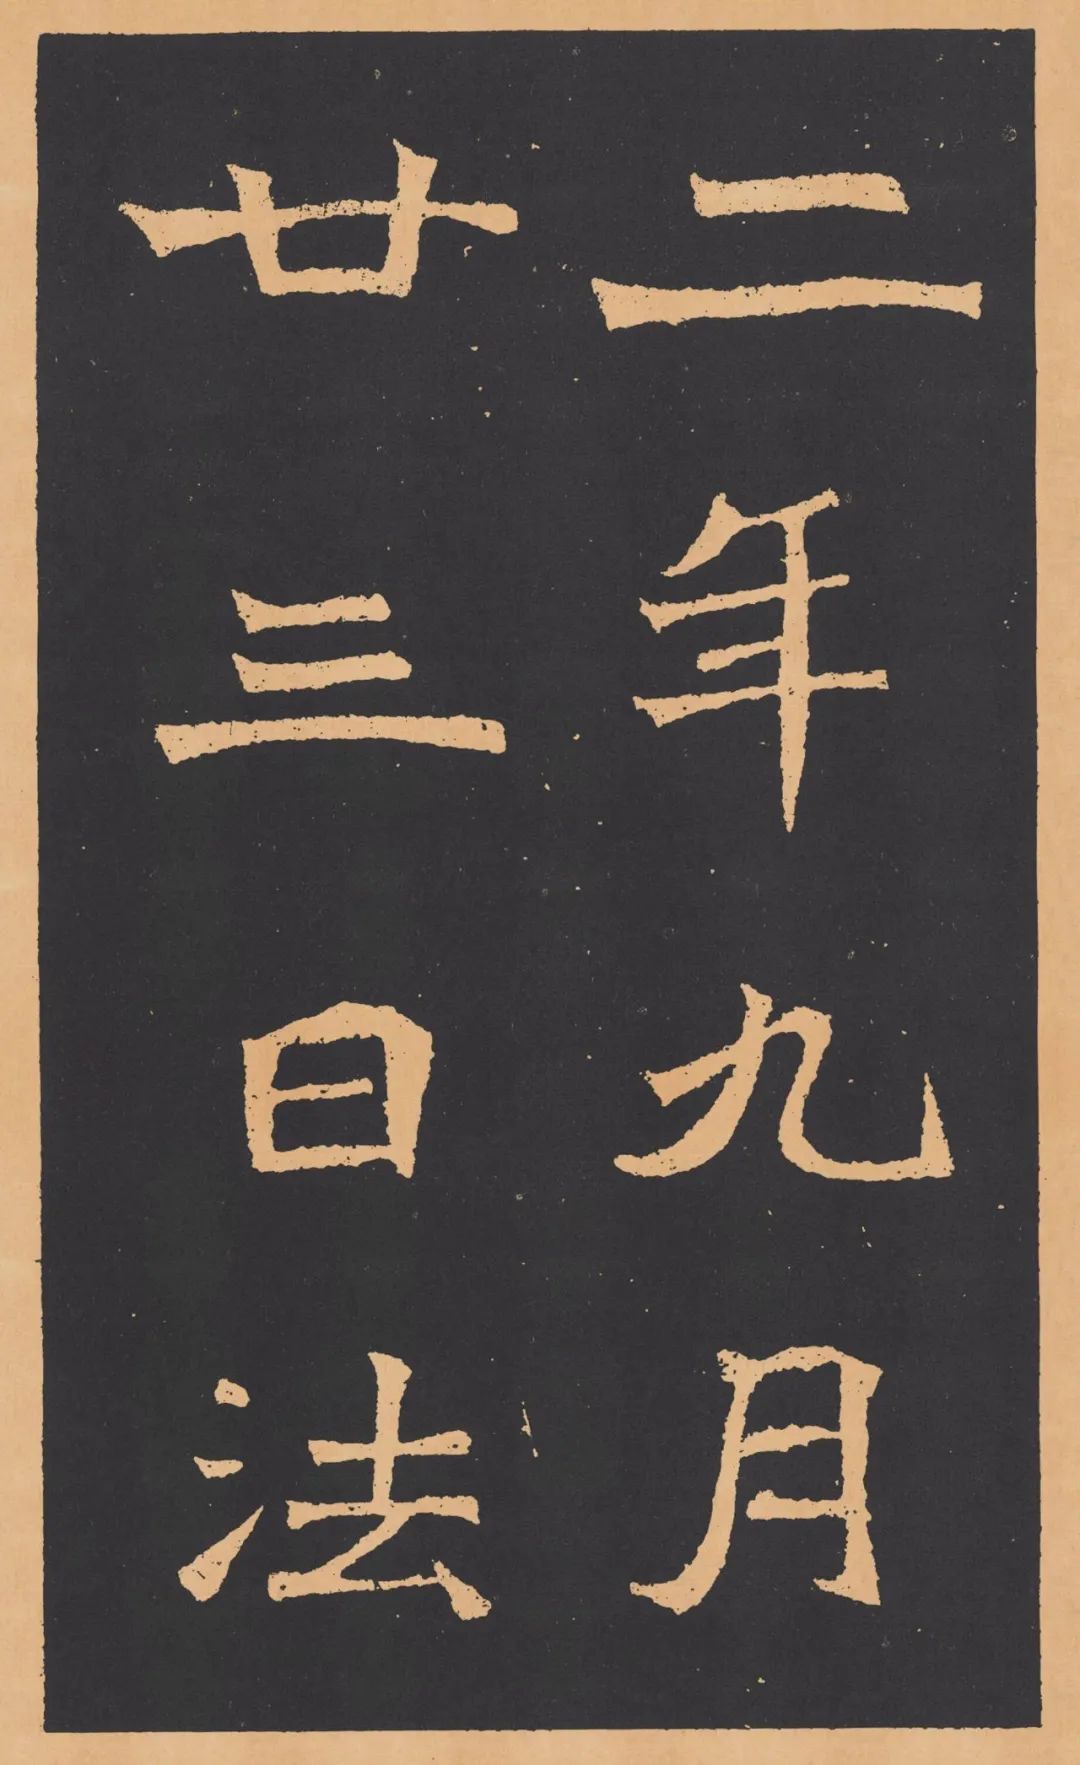 二年九月
廿三日法